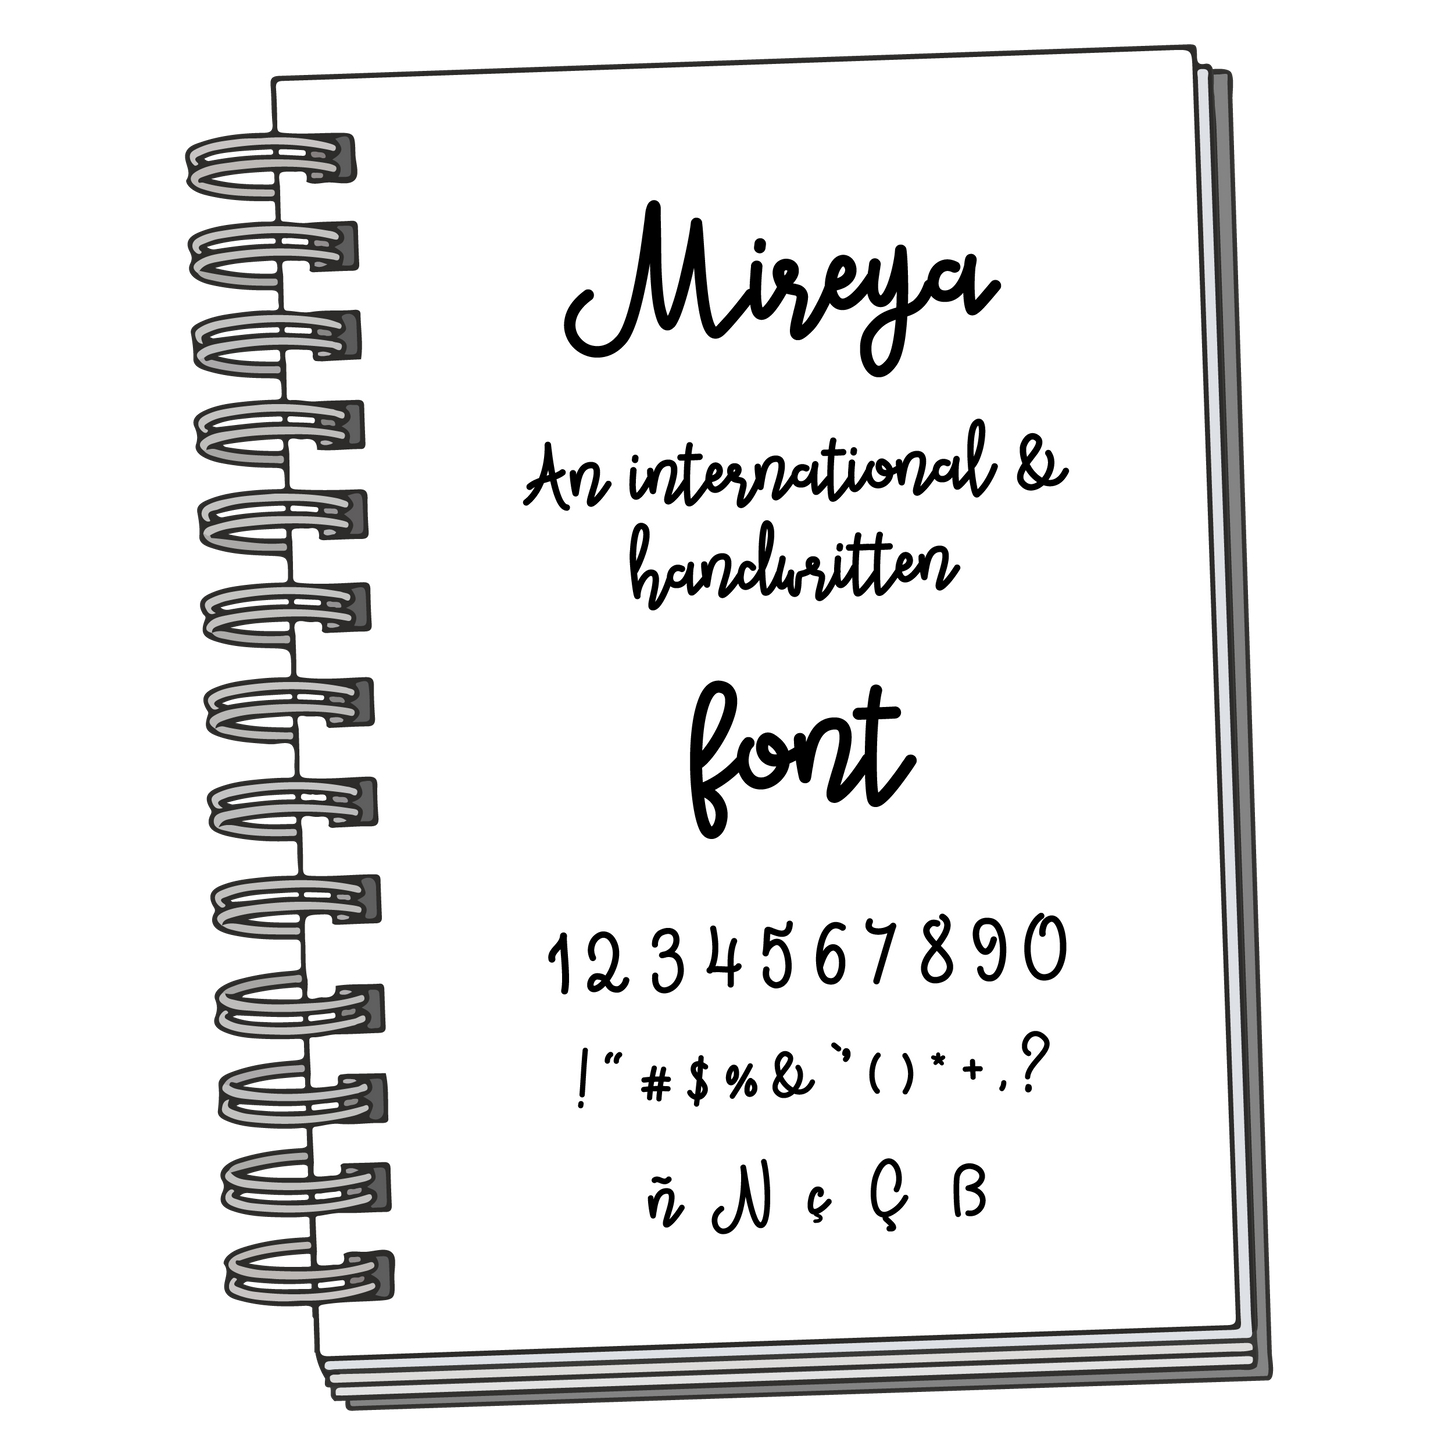 Mireya
An international &
handwritten
font
1 2 3 4 5 6 7 8 9 0
! " # $ % & ` ' ( ) * + , ?
ñ N ç Ç ß